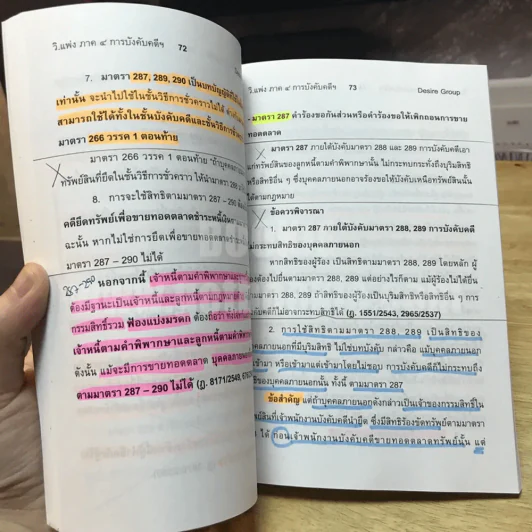 วิ.แพ่ง ภาค ๔ การบังคับคดีฯ 72
7. มาตรา 287, 289, 290 เป็นบทบัญญัติ
เท่านั้น จะนำไปใช้ในชั้นวิธีการชั่วคราวไม่ได้
สามารถใช้ได้ทั้งในชั้นบังคับคดีและชั้นวิธีการชั่ว
มาตรา 266 วรรค 1 ตอนท้าย
มาตรา 266 วรรค 1 ตอนท้าย "ถ้าบุคคล
ทรัพย์สินที่ยึดในชั้นวิธีการชั่วคราว ให้นำมาตรา
8. การจะใช้สิทธิตามมาตรา 287 -
คดียึดทรัพย์เพื่อขายทอดตลาดชำระหนี้
ฉะนั้น หากไม่ใช่การยึดเพื่อขายทอดตลาด
มาตรา 287 – 290 ไม่ได้
287-290 นอกจากนี้ เจ้าหนี้ตามคำพิพากษา
ต้องมีฐานะเป็นเจ้าหนี้และลูกหนี้ตามกฎหมาย
กรรมสิทธิ์รวม ฟ้องแบ่งมรดก ต้องถือว่า
เจ้าหนี้ตามคำพิพากษาและลูกหนี้ตามคำ
ดังนั้น แม้จะมีการขายทอดตลาด บุคคลภายนอก
ตามมาตรา 287 – 290 ไม่ได้ (ฎ. 8171/2549,
วิ.แพ่ง ภาค ๔ การบังคับคดีฯ 73 Desire Group
- มาตรา 287 คำร้องขอกันส่วนหรือคำร้องขอให้เพิกถอนการขาย
ทอดตลาด
มาตรา 287 ภายใต้บังคับมาตรา 288 และ 289 การบังคับคดีเอา
แก่ทรัพย์สินของลูกหนี้ตามคำพิพากษานั้น ไม่กระทบกระทั่งถึงบุริมสิทธิ
หรือสิทธิอื่น ๆ ซึ่งบุคคลภายนอกอาจร้องขอให้บังคับเหนือทรัพย์สินนั้น
ได้ตามกฎหมาย
ข้อควรพิจารณา
1. มาตรา 287 ภายใต้บังคับมาตรา 288, 289 การบังคับคดี
ไม่กระทบสิทธิของบุคคลภายนอก
หากสิทธิของผู้ร้อง เป็นสิทธิตามมาตรา 288, 289 โดยหลัก ผู้
ต้องไปยื่นตามมาตรา 288, 289 แต่อย่างไรก็ตาม แม้ผู้ร้องไม่ได้ยื่น
288, 289 ถ้าสิทธิของผู้ร้องเป็นบุริมสิทธิหรือสิทธิอื่น ๆ การ
คดีก็ไม่อาจกระทบสิทธิได้ (ฎ. 1551/2543, 2965/2537)
2. การใช้สิทธิตามมาตรา 288, 289 เป็นสิทธิของ
คคลภายนอกที่มีบุริมสิทธิ ไม่ใช่บทบังคับ กล่าวคือ แม้บุคคลภายนอก
เข้ามา หรือเข้ามาแต่เข้ามาโดยไม่ชอบ การบังคับคดีก็ไม่กระทบถึง
ของบุคคลภายนอกนั้น ทั้งนี้ ตามมาตรา 287
ข้อสำคัญ แต่ถ้าบุคคลภายนอกดังกล่าวเป็นเจ้าของกรรมสิทธิ์ใน
สินที่เจ้าพนักงานบังคับคดีนำยึด ซึ่งมีสิทธิร้องขัดทรัพย์ตามมาตรา
ได้ ก่อนเจ้าพนักงานบังคับคดีขายทอดตลาดทรัพย์นั้น แต่